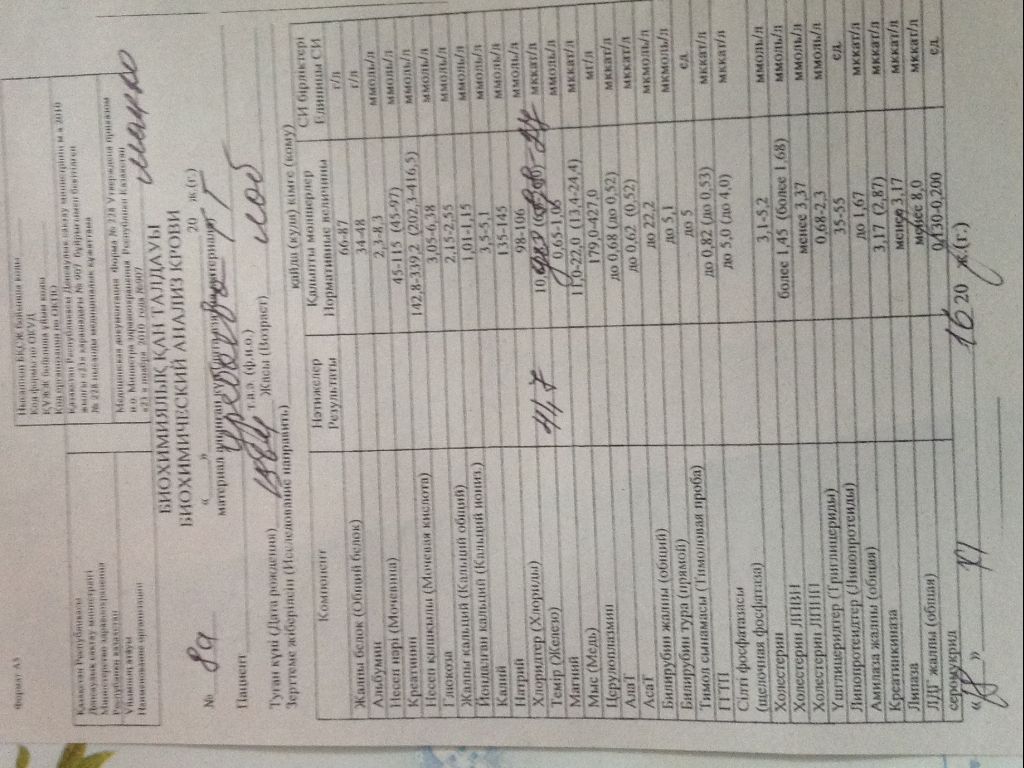 Формат А3
Қазақстан Республикасы
Денсаулық сақтау министрлігі
Министерство здравоохранения
Республики Казахстан
Ұйымның атауы
Наименование организации
Нысанның БҚСЖ бойынша коды
Код формы по ОКУД
КҰЖЖ бойынша ұйым коды
Код организации по ОКПО
Қазақстан Республикасы Денсаулық сақтау министрінің м.а 2010
жылғы «23» қарашадағы № 907 бұйрығымен бекітілген
№ 228 нысанды медициналық құжаттама
Медицинская документация Форма № 228 Утверждена приказом
и.о. Министра здравоохранения Республики Казахстан
«23 » ноября 2010 года №907
БИОХИМИЯЛЫҚ ҚАН ТАЛДАУЫ
БИОХИМИЧЕСКИЙ АНАЛИЗ КРОВИ
« » 20 ж.(г.)
№ 89
Пациент т.а.ә. (ф.и.о)
Туған күні (Дата рождения) 1984 Жасы (Возраст)
Зерттеме жіберілген (Исследование направить) қайда (куда) кімге (кому)
Компонент Нәтижелер Қалыпты мөлшерлер СИ бірліктері
Результаты Нормативные величины Единицы СИ
Жалпы белок (Общий белок) 66-87 г/л
Альбумин 34-48 г/л
Несеп нәрі (Мочевина) 2,3-8,3 ммоль/л
Креатинин 45-115 (45-97) ммоль/л
Несеп қышқылы (Мочевая кислота) 142,8-339,2 (202,3-416,5) ммоль/л
Глюкоза 3,05-6,38 ммоль/л
Жалпы кальций (Кальций общий) 2,15-2,55 ммоль/л
Йондалған кальций (Кальций иониз.) 1,01-1,15 ммоль/л
Калий 3,5-5,1 ммоль/л
Натрий 135-145 ммоль/л
Хлоридтер (Хлориды) 98-106 ммоль/л
Темір (Железо) 44.7 мккат/л
Магний 0,65-1,06 ммоль/л
Мыс (Медь) 11,0-22,0 (13,4-24,4) мккат/л
Церулоплазмин 179,0-427,0 мг/л
АлаТ до 0,68 (до 0,52) мккат/л
АсаТ до 0,62 (0,52) мккат/л
Билирубин жалпы (общий) до 22,2 мкмоль/л
Билирубин тура (прямой) до 5,1 мкмоль/л
Тимол сынамасы (Тимоловая проба) до 5 ед
ГГТП до 0,82 (до 0,53) мккат/л
Сілті фосфатазасы до 5,0 (до 4,0) мккат/л
(щелочная фосфатаза)
Холестерин 3,1-5,2 ммоль/л
Холестерин ЛПВП более 1,45 (более 1,68) ммоль/л
Холестерин ЛПНП менее 3,37 ммоль/л
Үшглицеридтер (Триглицериды) 0,68-2,3 ммоль/л
Липопротеидтер (Липопротеиды) 35-55 ед
Амилаза жалпы (общая) до 1,67 мккат/л
Креатинкиназа 3,17 (2,87) мккат/л
Липаза менее 3,17 мккат/л
ЛДГ жалпы (общая) менее 8,0 мккат/л
серомукоид 0,130-0,200 ед
«18» 16 20 ж.(г.)